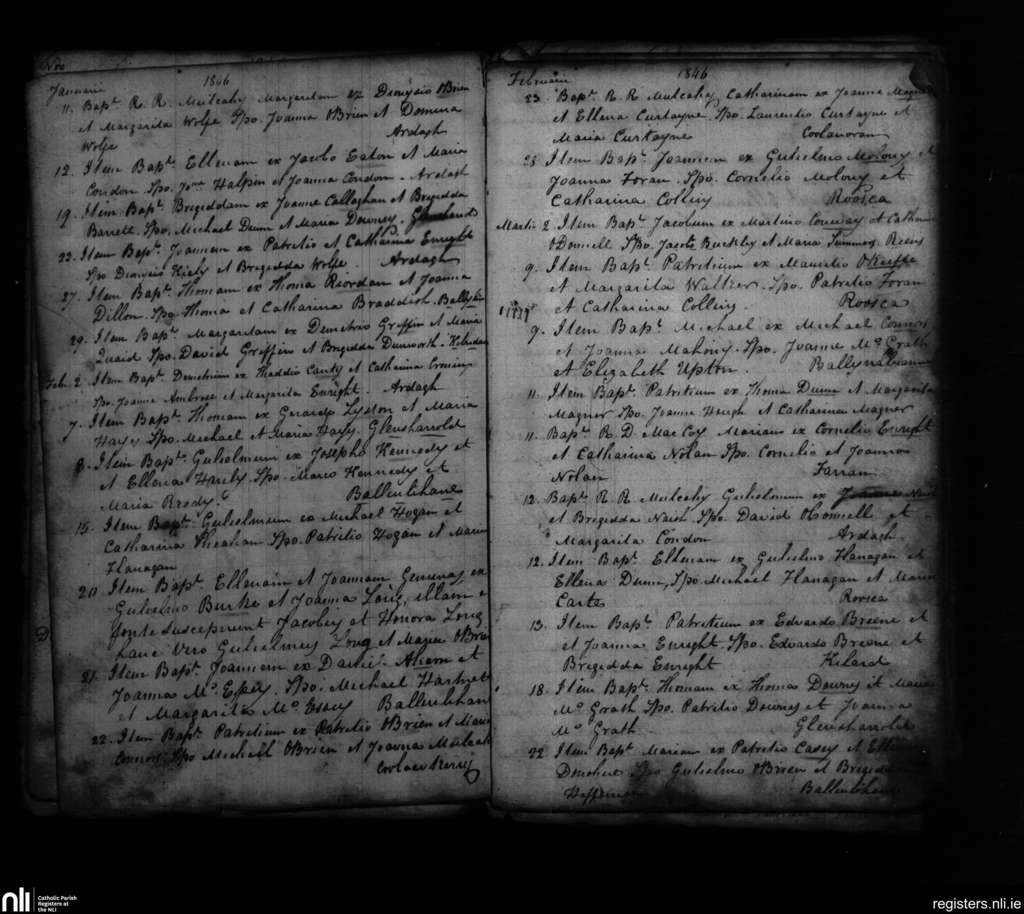 Januarii 1846
11. Bapt. R. R. Mulcahy Margaretam ex Dionysio OBrien
et Margarita Wolfe Spo. Joanna OBrien et
Wolfe Ardagh
12. Item Bapt. Ellenam ex Jacobo Eaton et Maria
Condon Spo. Halpin et Joanna Condon. Ardagh
19. Item Bapt. Brigiddam ex Joanne Callaghan et Brigidda
Barrett. Spo. Michael Dunn et Maria Downey.
23. Item Bapt. Joannem ex Patritio et Catharina Enright
Spo Dionysio Kiely et Brigidda Wolfe. Ardagh
27. Item Bapt. Thomam ex Thoma Riordan et Joanna
Dillon. Spo Thoma et Catharina Braddish.
29. Item Bapt. Margaritam ex Demetrio Griffin et Maria
Quaid Spo. David Griffin et Brigidda Dunworth.
Feb. 2. Item Bapt. Demetrium ex Thaddio Canty et Catharina Cronin
Spo. Joanne Ambrose et Margarita Enright. Ardagh
7. Item Bapt. Thomam ex Gerardo Lyston et Maria
Hayes Spo. Michael et Maria Hayes. Glensharrold
8. Item Bapt. Gulielmum ex Josepho Kennedy et
et Ellena Spo. Marco Kennedy et
Maria Ready Ballinlihane
15. Item Bapt. Gulielmum ex Michael Hogan et
Catharina Sheahan Spo. Patritio Hogan et Maria
Flanagan
20 Item Bapt. Ellenam et Joannam Geminas ex
Gulielmo Burke et Joanna Long, illam e
fonte susceperunt Jacobus et Honora Long
hanc vero Gulielmus Long et Maria OBrien
21. Item Bapt. Joannem ex Daniel Ahern et
Joanna Mc. Spo. Michael Hartnet
et Margarita Mc. Ballinlihan
22. Item Bapt. Patritium ex Patritio OBrien et Maria
Connors. Spo Michael OBrien et Joanna Mulcahy
Februarii 1846
23. Bapt. R R Mulcahy Catharinam ex Joanne Magner
et Ellena Curtayne. Spo. Laurentio Curtayne et
Maria Curtayne Coolanoran
25 Item Bapt. Joannem ex Gulielmo Molony et
Joanna Foran. Spo. Cornelio Molony et
Catharina Collins Roosca
Martii 2. Item Bapt. Jacobum ex Martino Conway et Catharina
ODonnell Spo. Jacob. Buckley et Maria Summers. Reens
9. Item Bapt. Patritium ex Mauritio OKeiffe
et Margarita Spo. Patritio Foran
et Catharina Collins. Roosca
9. Item Bapt. Michael ex Michael Connors
et Joanna Mahony. Spo. Joanne Mc. Grath
et Elizabeth Upton.
11. Item Bapt. Patritium ex Thoma Dunn et Margarita
Magner Spo. Joanne Hough et Catharina Magner
11. Bapt. R. D. MacCoy Mariam ex Cornelio Enright
et Catharina Nolan Spo. Cornelio et Joanna
Nolan Farran
12. Bapt. R. R. Mulcahy Gulielmum ex
et Brigidda Naish Spo. David OConnell et
Margarita Condon Ardagh
12. Item Bapt. Ellenam ex Gulielmo Flanagan et
Ellena Dunn, Spo. Michael Flanagan et Maria
Carte Roosca
13. Item Bapt. Patritium ex Edvardo Breene et
et Joanna Enright. Spo. Edvardo Breene et
Brigidda Enright Kilard
18. Item Bapt. Thomam ex Thoma Downey et Maria
Mc. Grath Spo. Patritio Downey et Joanna
Mc. Grath. Glensharrold
22. Item Bapt Mariam ex Patritio Casey et
Spo Gulielmo OBrien et Brigidda
Ballinlihane
nli Catholic Parish
Registers at
the NLI
registers.nli.ie